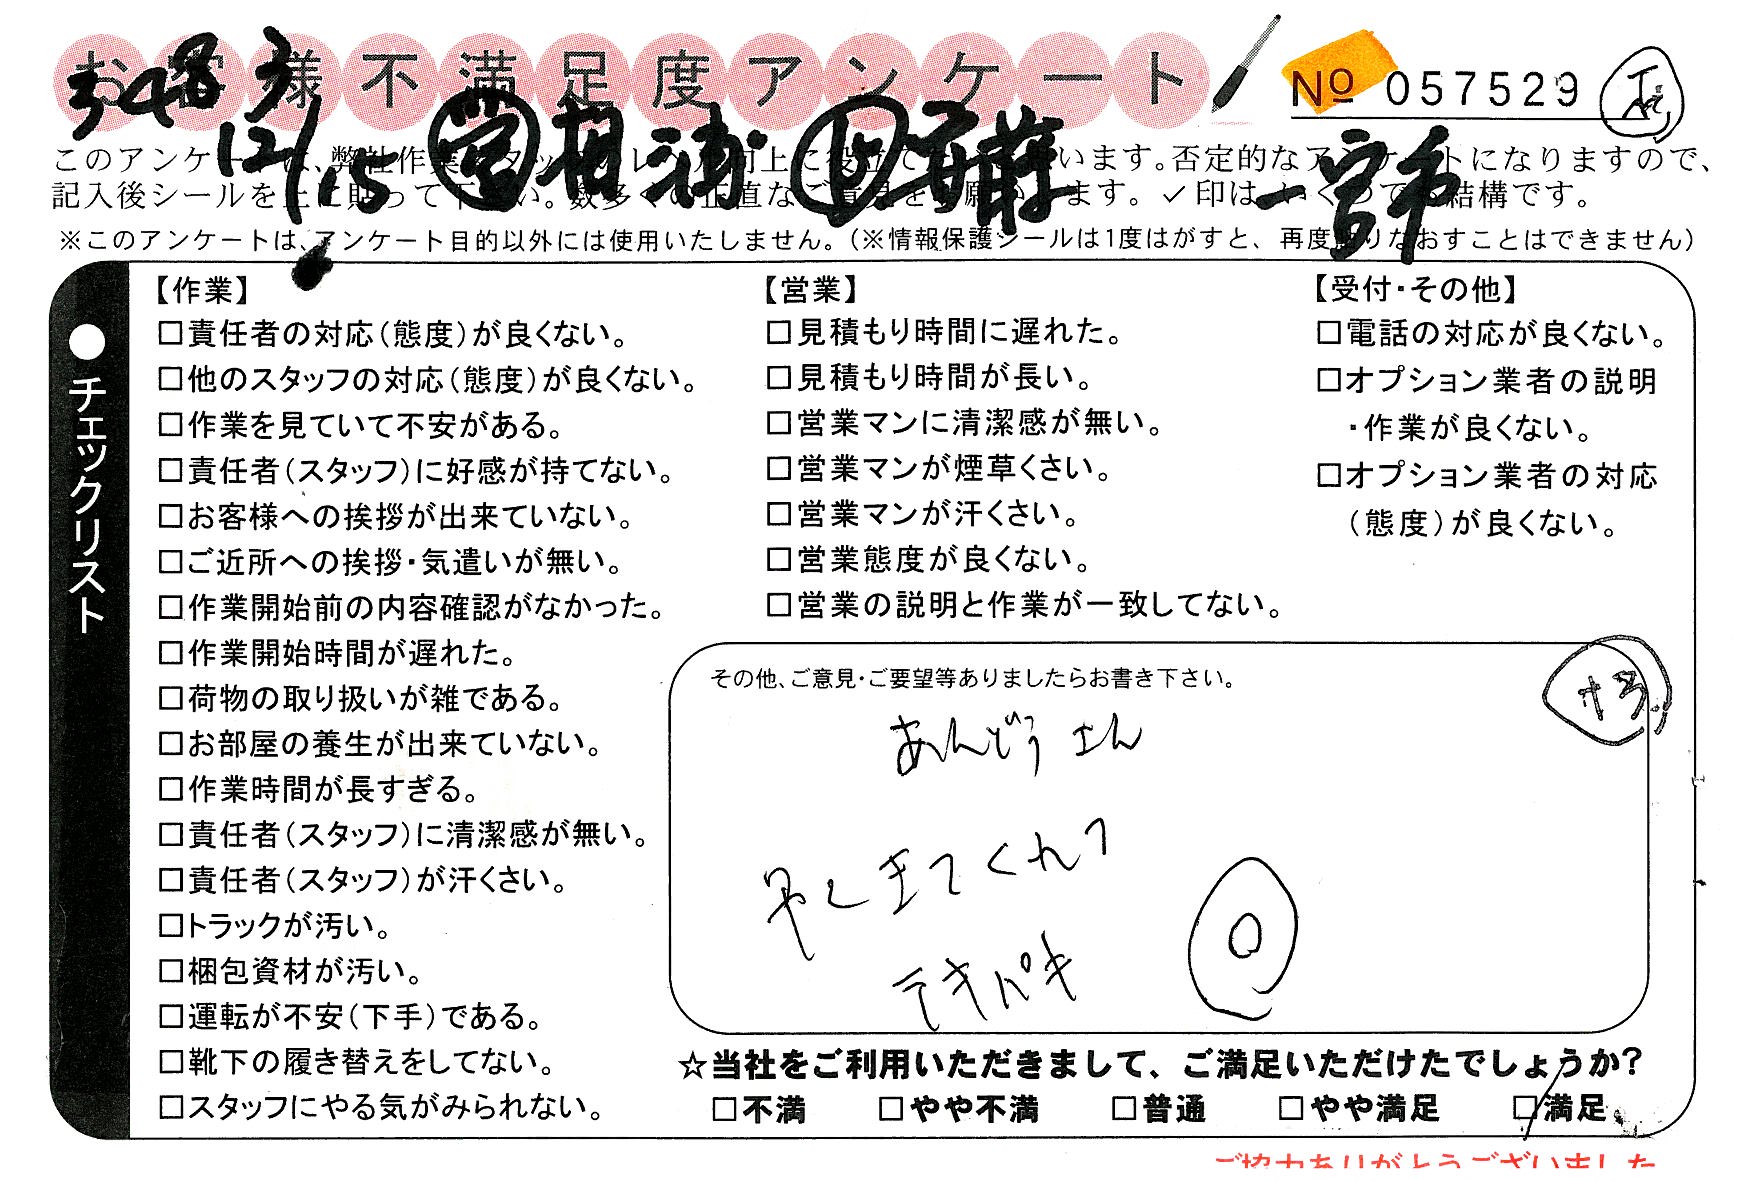 お客様不満足度アンケート
No 057529
12/15 営 相浦 斉藤 一宮市
このアンケートは、弊社作業スタッフのレベル向上に役立てたいと思います。否定的なアンケートになりますので、
記入後シールを上に貼って下さい。数多くの正直なご意見をお願いします。✓印はいくつでも結構です。
※このアンケートは、アンケート目的以外には使用いたしません。（※情報保護シールは1度はがすと、再度貼りなおすことはできません）
●チェックリスト
【作業】
□責任者の対応（態度）が良くない。
□他のスタッフの対応（態度）が良くない。
□作業を見ていて不安がある。
□責任者（スタッフ）に好感が持てない。
□お客様への挨拶が出来ていない。
□ご近所への挨拶・気遣いが無い。
□作業開始前の内容確認がなかった。
□作業開始時間が遅れた。
□荷物の取り扱いが雑である。
□お部屋の養生が出来ていない。
□作業時間が長すぎる。
□責任者（スタッフ）に清潔感が無い。
□責任者（スタッフ）が汗くさい。
□トラックが汚い。
□梱包資材が汚い。
□運転が不安（下手）である。
□靴下の履き替えをしてない。
□スタッフにやる気がみられない。
【営業】
□見積もり時間に遅れた。
□見積もり時間が長い。
□営業マンに清潔感が無い。
□営業マンが煙草くさい。
□営業マンが汗くさい。
□営業態度が良くない。
□営業の説明と作業が一致してない。
【受付・その他】
□電話の対応が良くない。
□オプション業者の説明
・作業が良くない。
□オプション業者の対応
（態度）が良くない。
その他、ご意見・ご要望等ありましたらお書き下さい。
あんどう さん
早くきてくれて
テキパキ ◎
☆当社をご利用いただきまして、ご満足いただけたでしょうか？
□不満 □やや不満 □普通 □やや満足 □満足
ご協力ありがとうございました